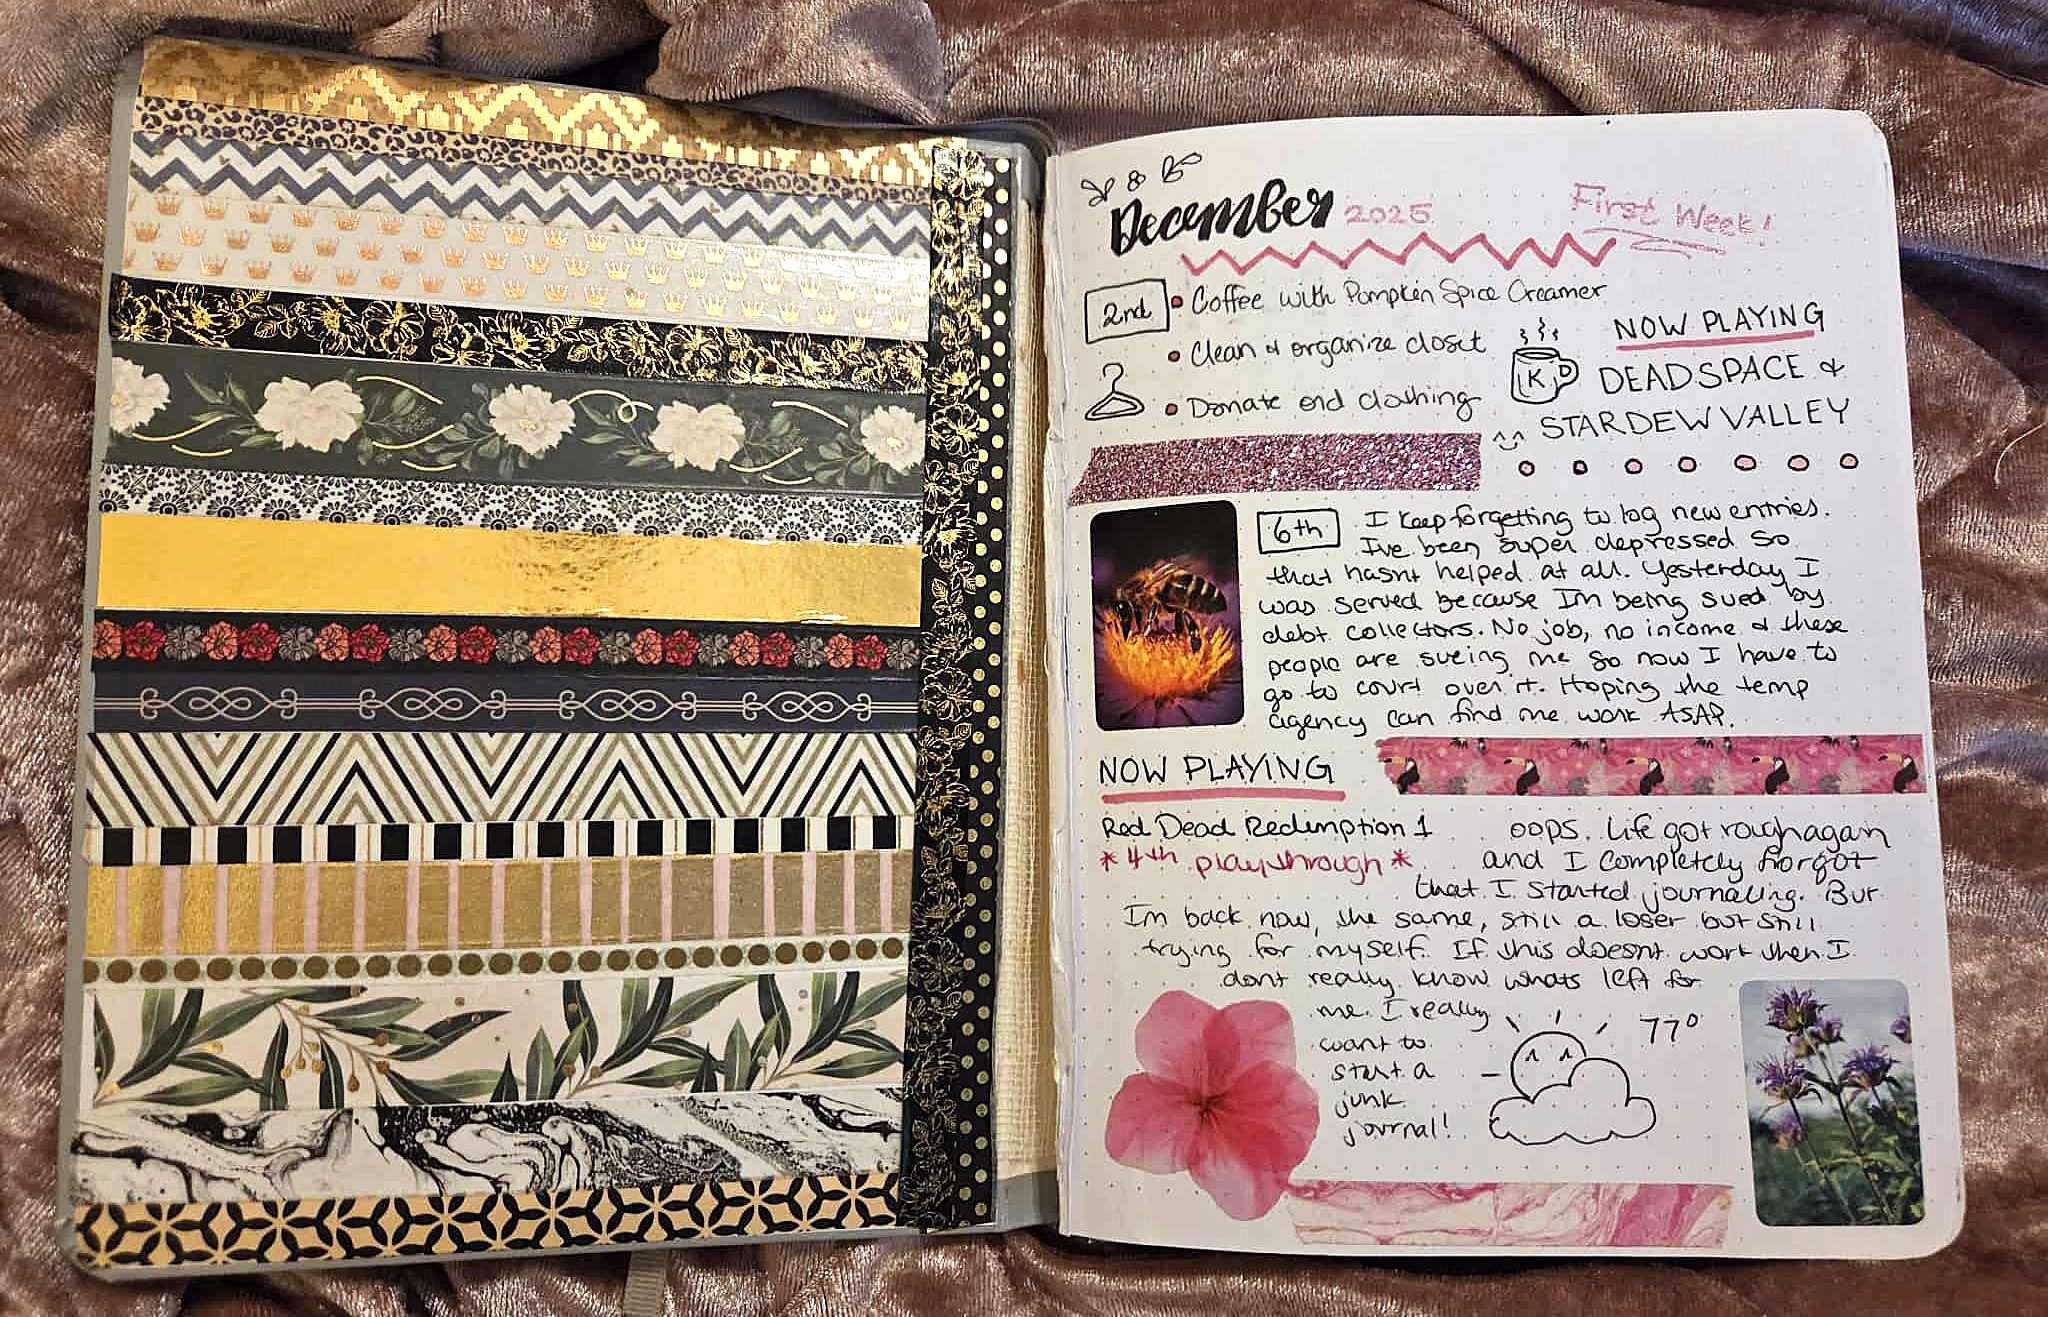 December 2025
First Week!
2nd
• Coffee with Pumpkin Spice Creamer
• Clean & organize closet
• Donate old clothing
NOW PLAYING
K
DEADSPACE &
STARDEW VALLEY
6th
I keep forgetting to log new entries.
I've been super depressed so
that hasnt helped at all. Yesterday I
was served because Im being sued by
debt collectors. No job, no income & these
people are sueing me so now I have to
go to court over it. Hoping the temp
agency can find me work ASAP.
NOW PLAYING
Red Dead Redemption 1
* 4th playthrough *
oops. Life got rough again
and I completely forgot
that I started journaling. But
Im back now, the same, still a loser but still
trying for myself. If this doesnt work then I
dont really know whats left for
me. I really
want to
start a
junk
journal!
77°